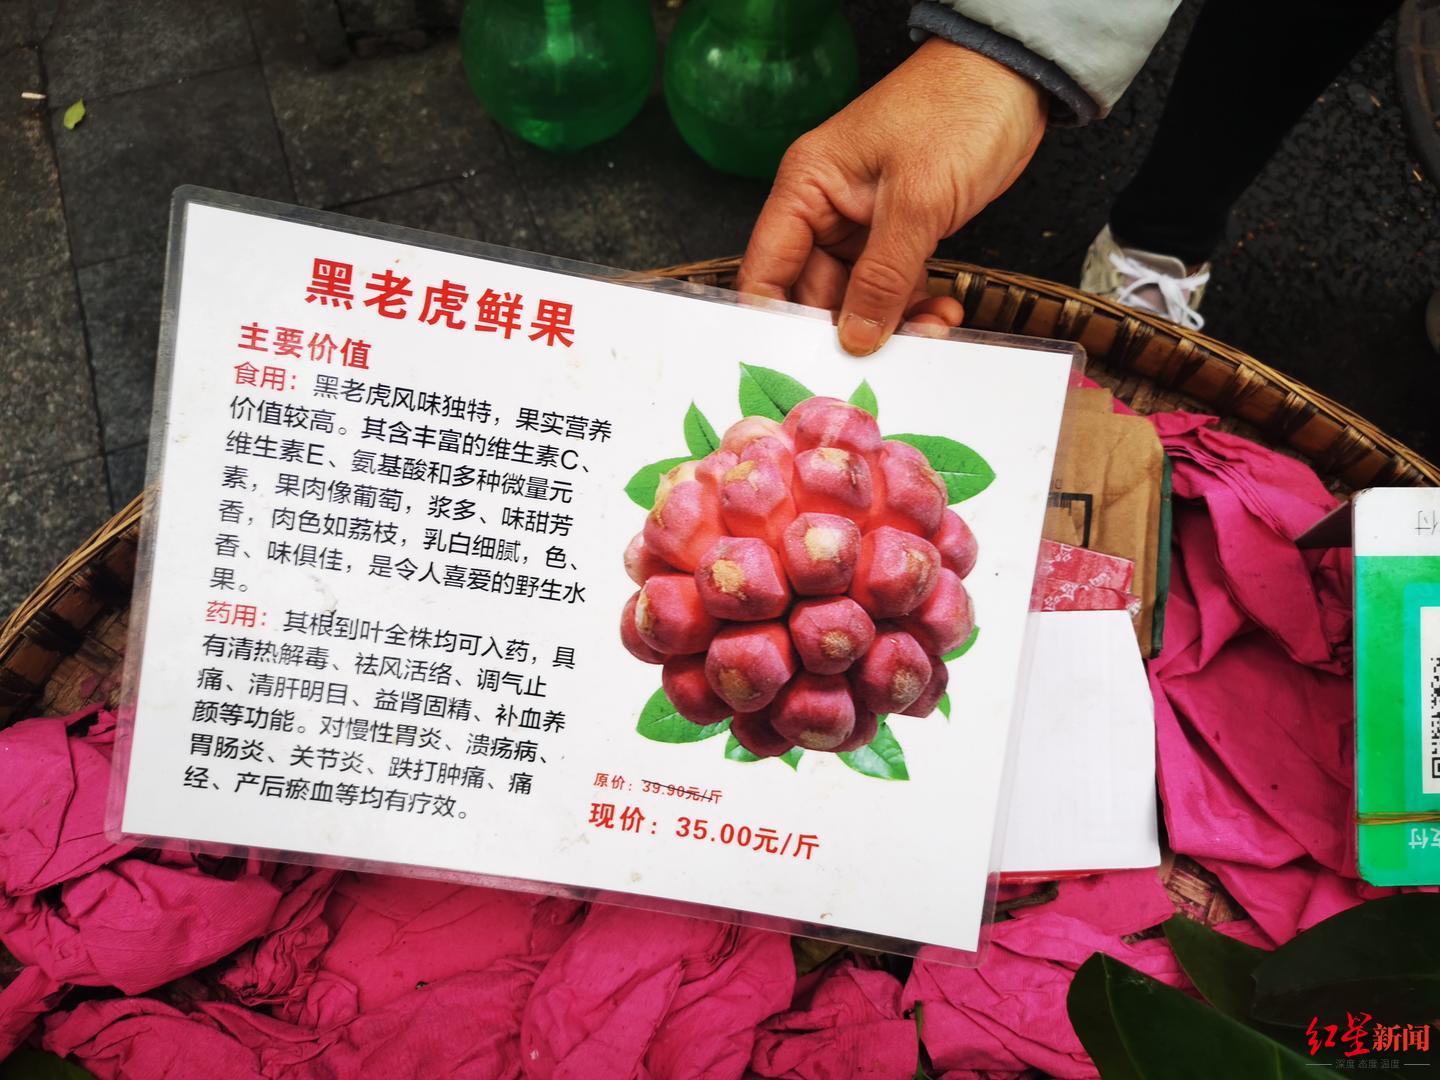 黑老虎鲜果
主要价值
食用：黑老虎风味独特，果实营养
价值较高。其含丰富的维生素C、
维生素E、氨基酸和多种微量元
素，果肉像葡萄，浆多、味甜芳
香，肉色如荔枝，乳白细腻，色、
香、味俱佳，是令人喜爱的野生水
果。
药用：其根到叶全株均可入药，具
有清热解毒、祛风活络、调气止
痛、清肝明目、益肾固精、补血养
颜等功能。对慢性胃炎、溃疡病、
胃肠炎、关节炎、跌打肿痛、痛
经、产后瘀血等均有疗效。
原价：39.90元/斤
现价：35.00元/斤
付
支付
红星新闻
深度 态度 温度